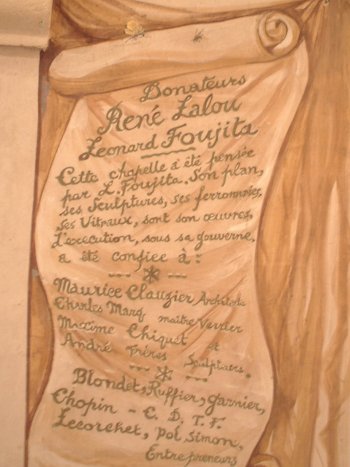 Donateurs
René Lalou
Leonard Foujita
Cette chapelle a été pensée
par L. Foujita. Son plan,
ses Sculptures, ses ferronneries,
Ses Vitraux, sont son œuvres,
L'execution, sous sa gouverne,
a été confiée à:
Maurice Clauzier Architecte
Charles Marq maître Verrier
Maxime Chiquet et
André frères Sculpteurs.
Blondet, Ruffier, Garnier,
Chopin - C. D. T. F.
Lecorchet, Pol, Simon,
Entrepreneurs